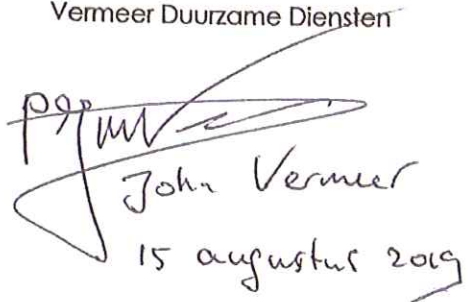 Vermeer Duurzame Diensten
John Vermeer
15 augustus 2019